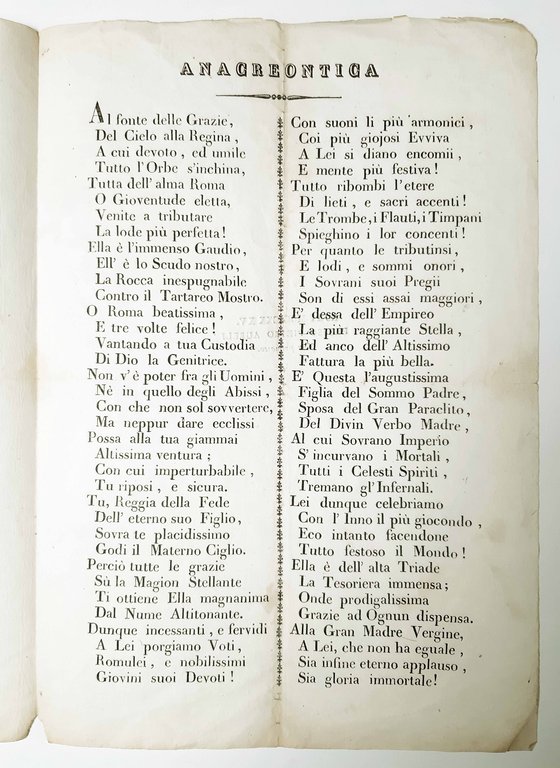 ANACREONTICA
Al fonte delle Grazie,
Del Cielo alla Regina,
A cui devoto, ed umile
Tutto l'Orbe s'inchina,
Tutta dell'alma Roma
O Gioventude eletta,
Venite a tributare
La lode più perfetta!
Ella è l'immenso Gaudio,
Ell' è lo Scudo nostro,
La Rocca inespugnabile
Contro il Tartareo Mostro.
O Roma beatissima,
E tre volte felice!
Vantando a tua Custodia
Di Dio la Genitrice.
Non v'è poter fra gli Uomini,
Nè in quello degli Abissi,
Con che non sol sovvertere,
Ma neppur dare ecclissi
Possa alla tua giammai
Altissima ventura;
Con cui imperturbabile,
Tu riposi, e sicura.
Tu, Reggia della Fede
Dell' eterno suo Figlio,
Sovra te placidissimo
Godi il Materno Ciglio.
Perciò tutte le grazie
Sù la Magion Stellante
Ti ottiene Ella magnanima
Dal Nume Altitonante.
Dunque incessanti, e fervidi
A Lei porgiamo Voti,
Romulei, e nobilissimi
Giovini suoi Devoti!
Con suoni li più armonici,
Coi più giojosi Evviva
A Lei si diano encomii,
E mente più festiva!
Tutto ribombi l'etere
Di lieti, e sacri accenti!
Le Trombe, i Flauti, i Timpani
Spieghino i lor concenti!
Per quanto le tributinsi,
E lodi, e sommi onori,
I Sovrani suoi Pregii
Son di essi assai maggiori,
E' dessa dell' Empireo
La più raggiante Stella,
Ed anco dell' Altissimo
Fattura la più bella.
E' Questa l'augustissima
Figlia del Sommo Padre,
Sposa del Gran Paraclito,
Del Divin Verbo Madre,
Al cui Sovrano Imperio
S'incurvano i Mortali,
Tutti i Celesti Spiriti,
Tremano gl'Infernali.
Lei dunque celebriamo
Con l'Inno il più giocondo,
Eco intanto facendone
Tutto festoso il Mondo!
Ella è dell' alta Triade
La Tesoriera immensa;
Onde prodigalissima
Grazie ad Ognun dispensa.
Alla Gran Madre Vergine,
A Lei, che non ha eguale,
Sia infine eterno applauso,
Sia gloria immortale!